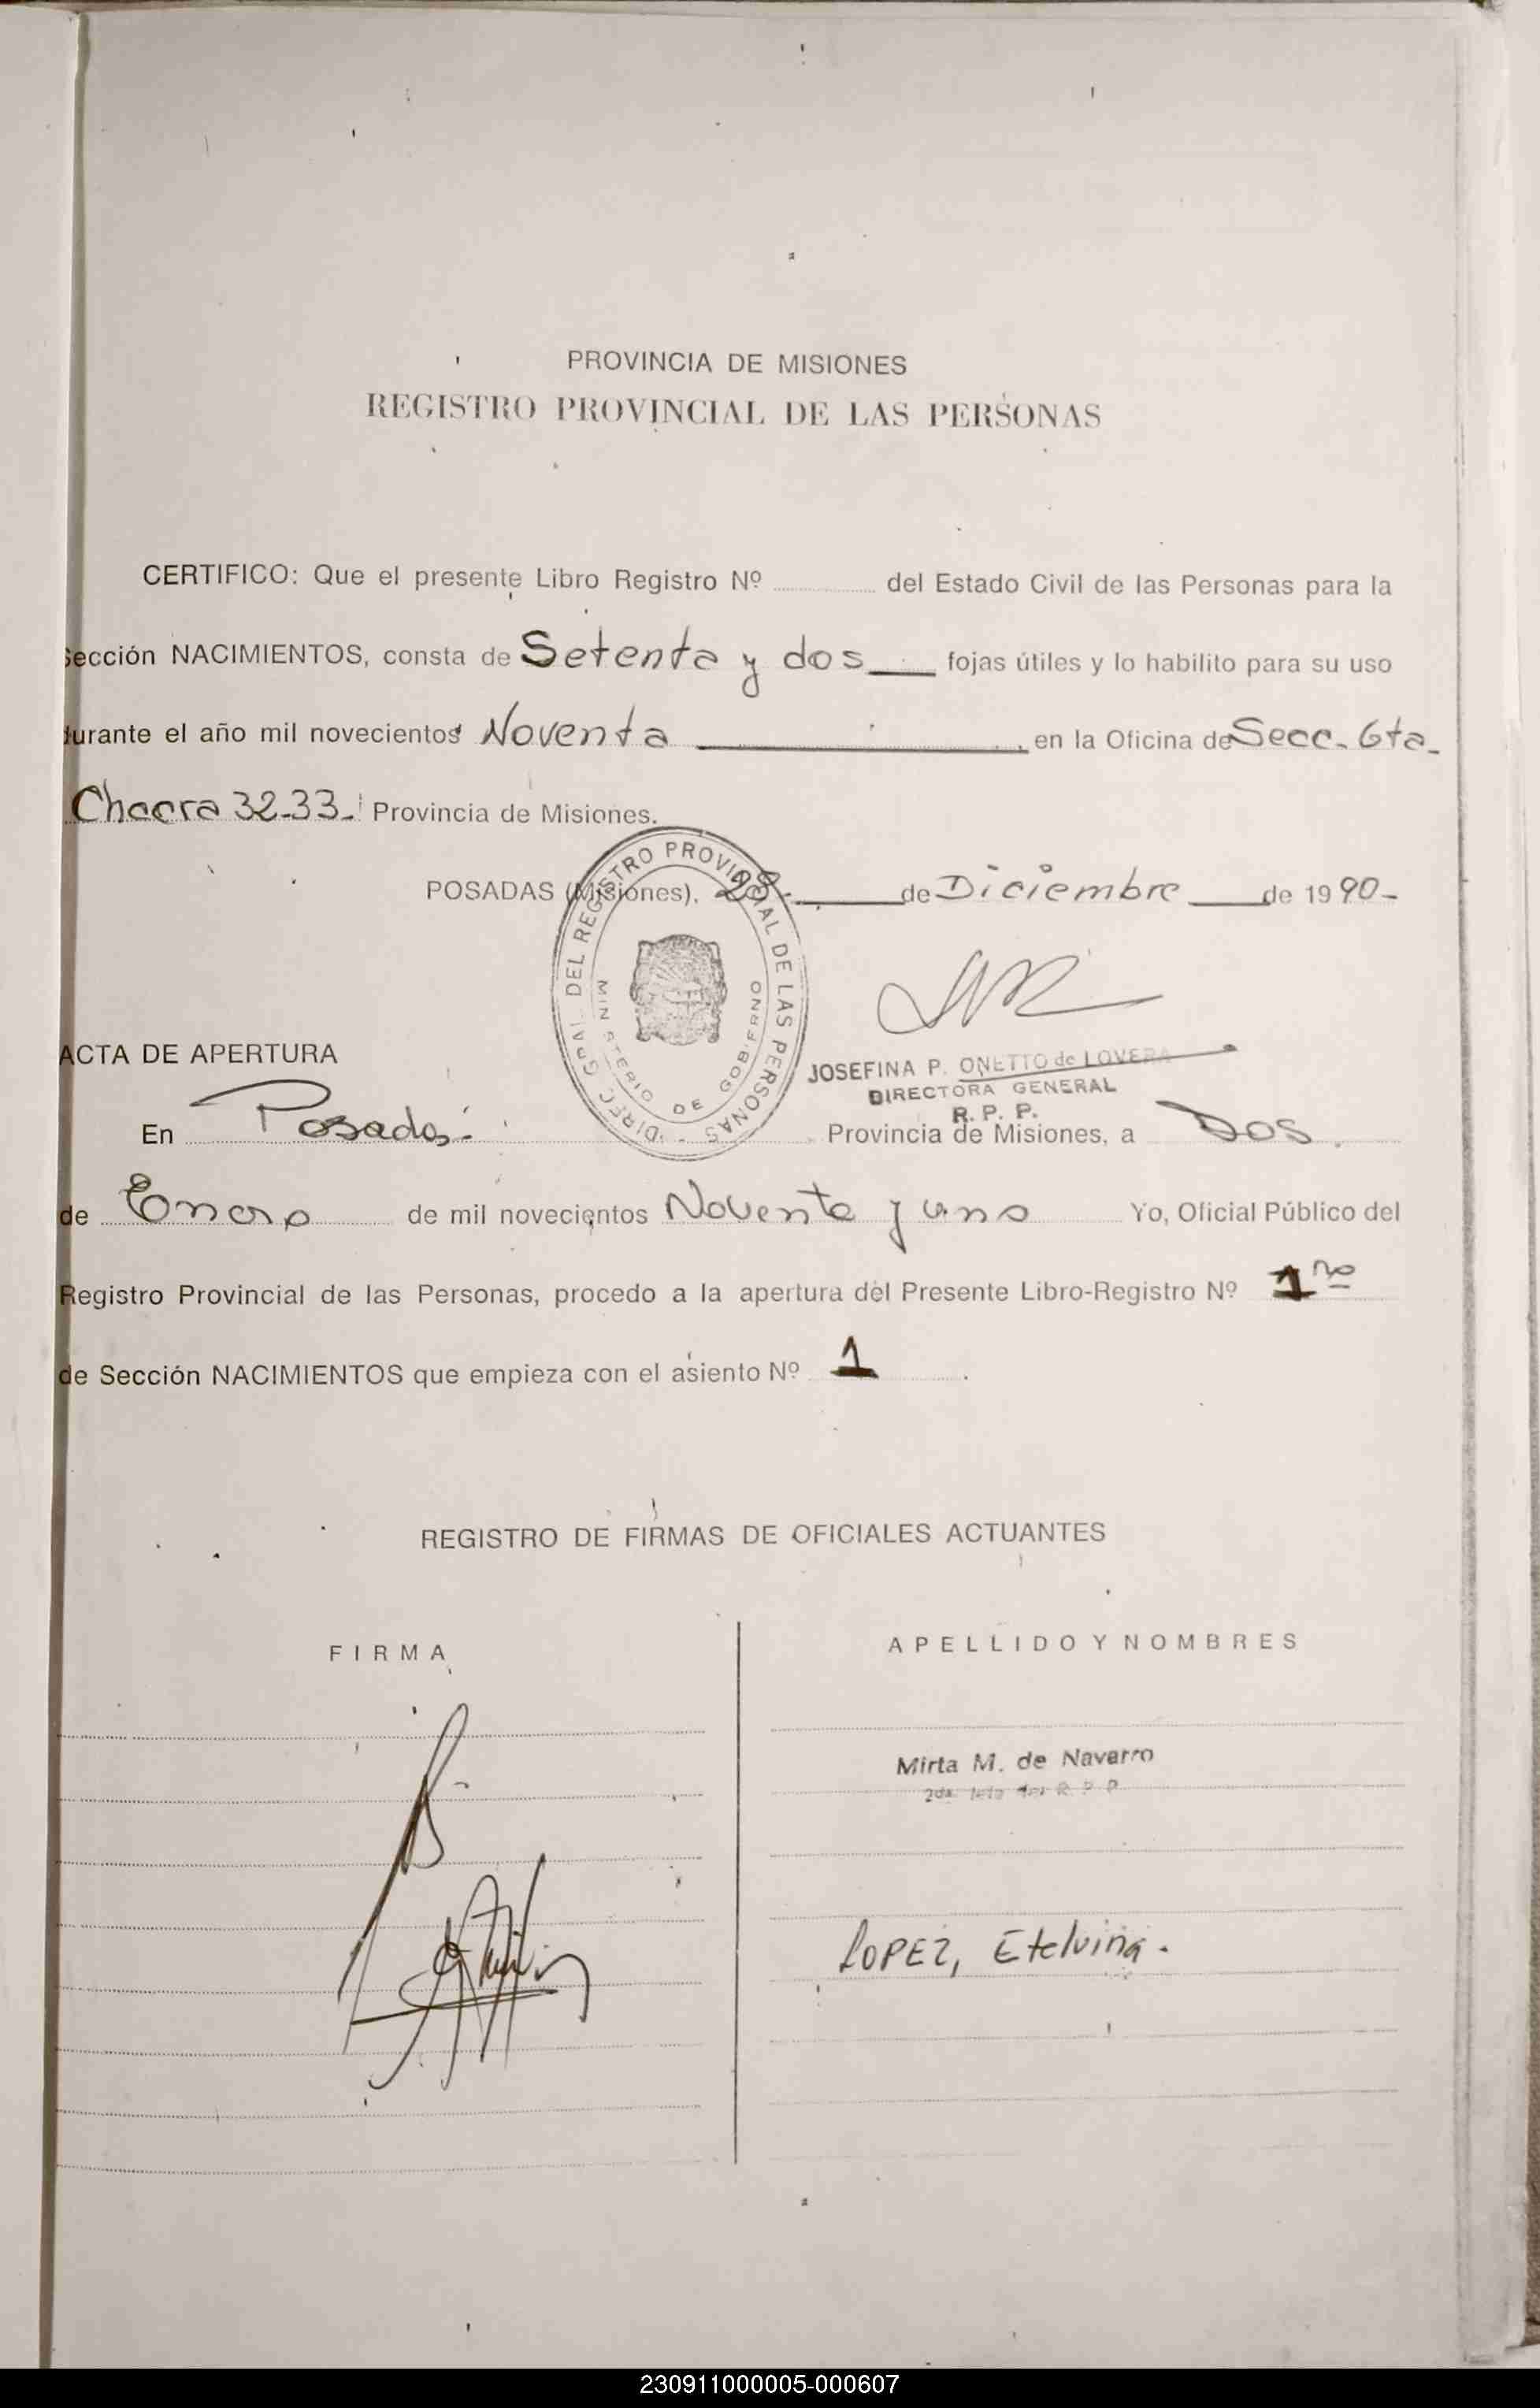 PROVINCIA DE MISIONES
REGISTRO PROVINCIAL DE LAS PERSONAS
CERTIFICO: Que el presente Libro Registro Nº del Estado Civil de las Personas para la
Sección NACIMIENTOS, consta de Setenta y dos fojas útiles y lo habilito para su uso
durante el año mil novecientos Noventa en la Oficina de Secc. 6ta.
Chacra 32-33- Provincia de Misiones.
POSADAS (Misiones), 28 de Diciembre de 1990-
DIREC. GRAL. DEL REGISTRO PROVINCIAL DE LAS PERSONAS
MINISTERIO DE GOBIERNO
JOSEFINA P. ONETTO de LOVERA
DIRECTORA GENERAL
R. P. P.
ACTA DE APERTURA
En Posadas Provincia de Misiones, a Dos
de Enero de mil novecientos Noventa y uno Yo, Oficial Público del
Registro Provincial de las Personas, procedo a la apertura del Presente Libro-Registro Nº 1ro
de Sección NACIMIENTOS que empieza con el asiento Nº 1
REGISTRO DE FIRMAS DE OFICIALES ACTUANTES
FIRMA
APELLIDO Y NOMBRES
Mirta M. de Navarro
2da. R. P. P.
LOPEZ, Etelvina.
230911000005-000607